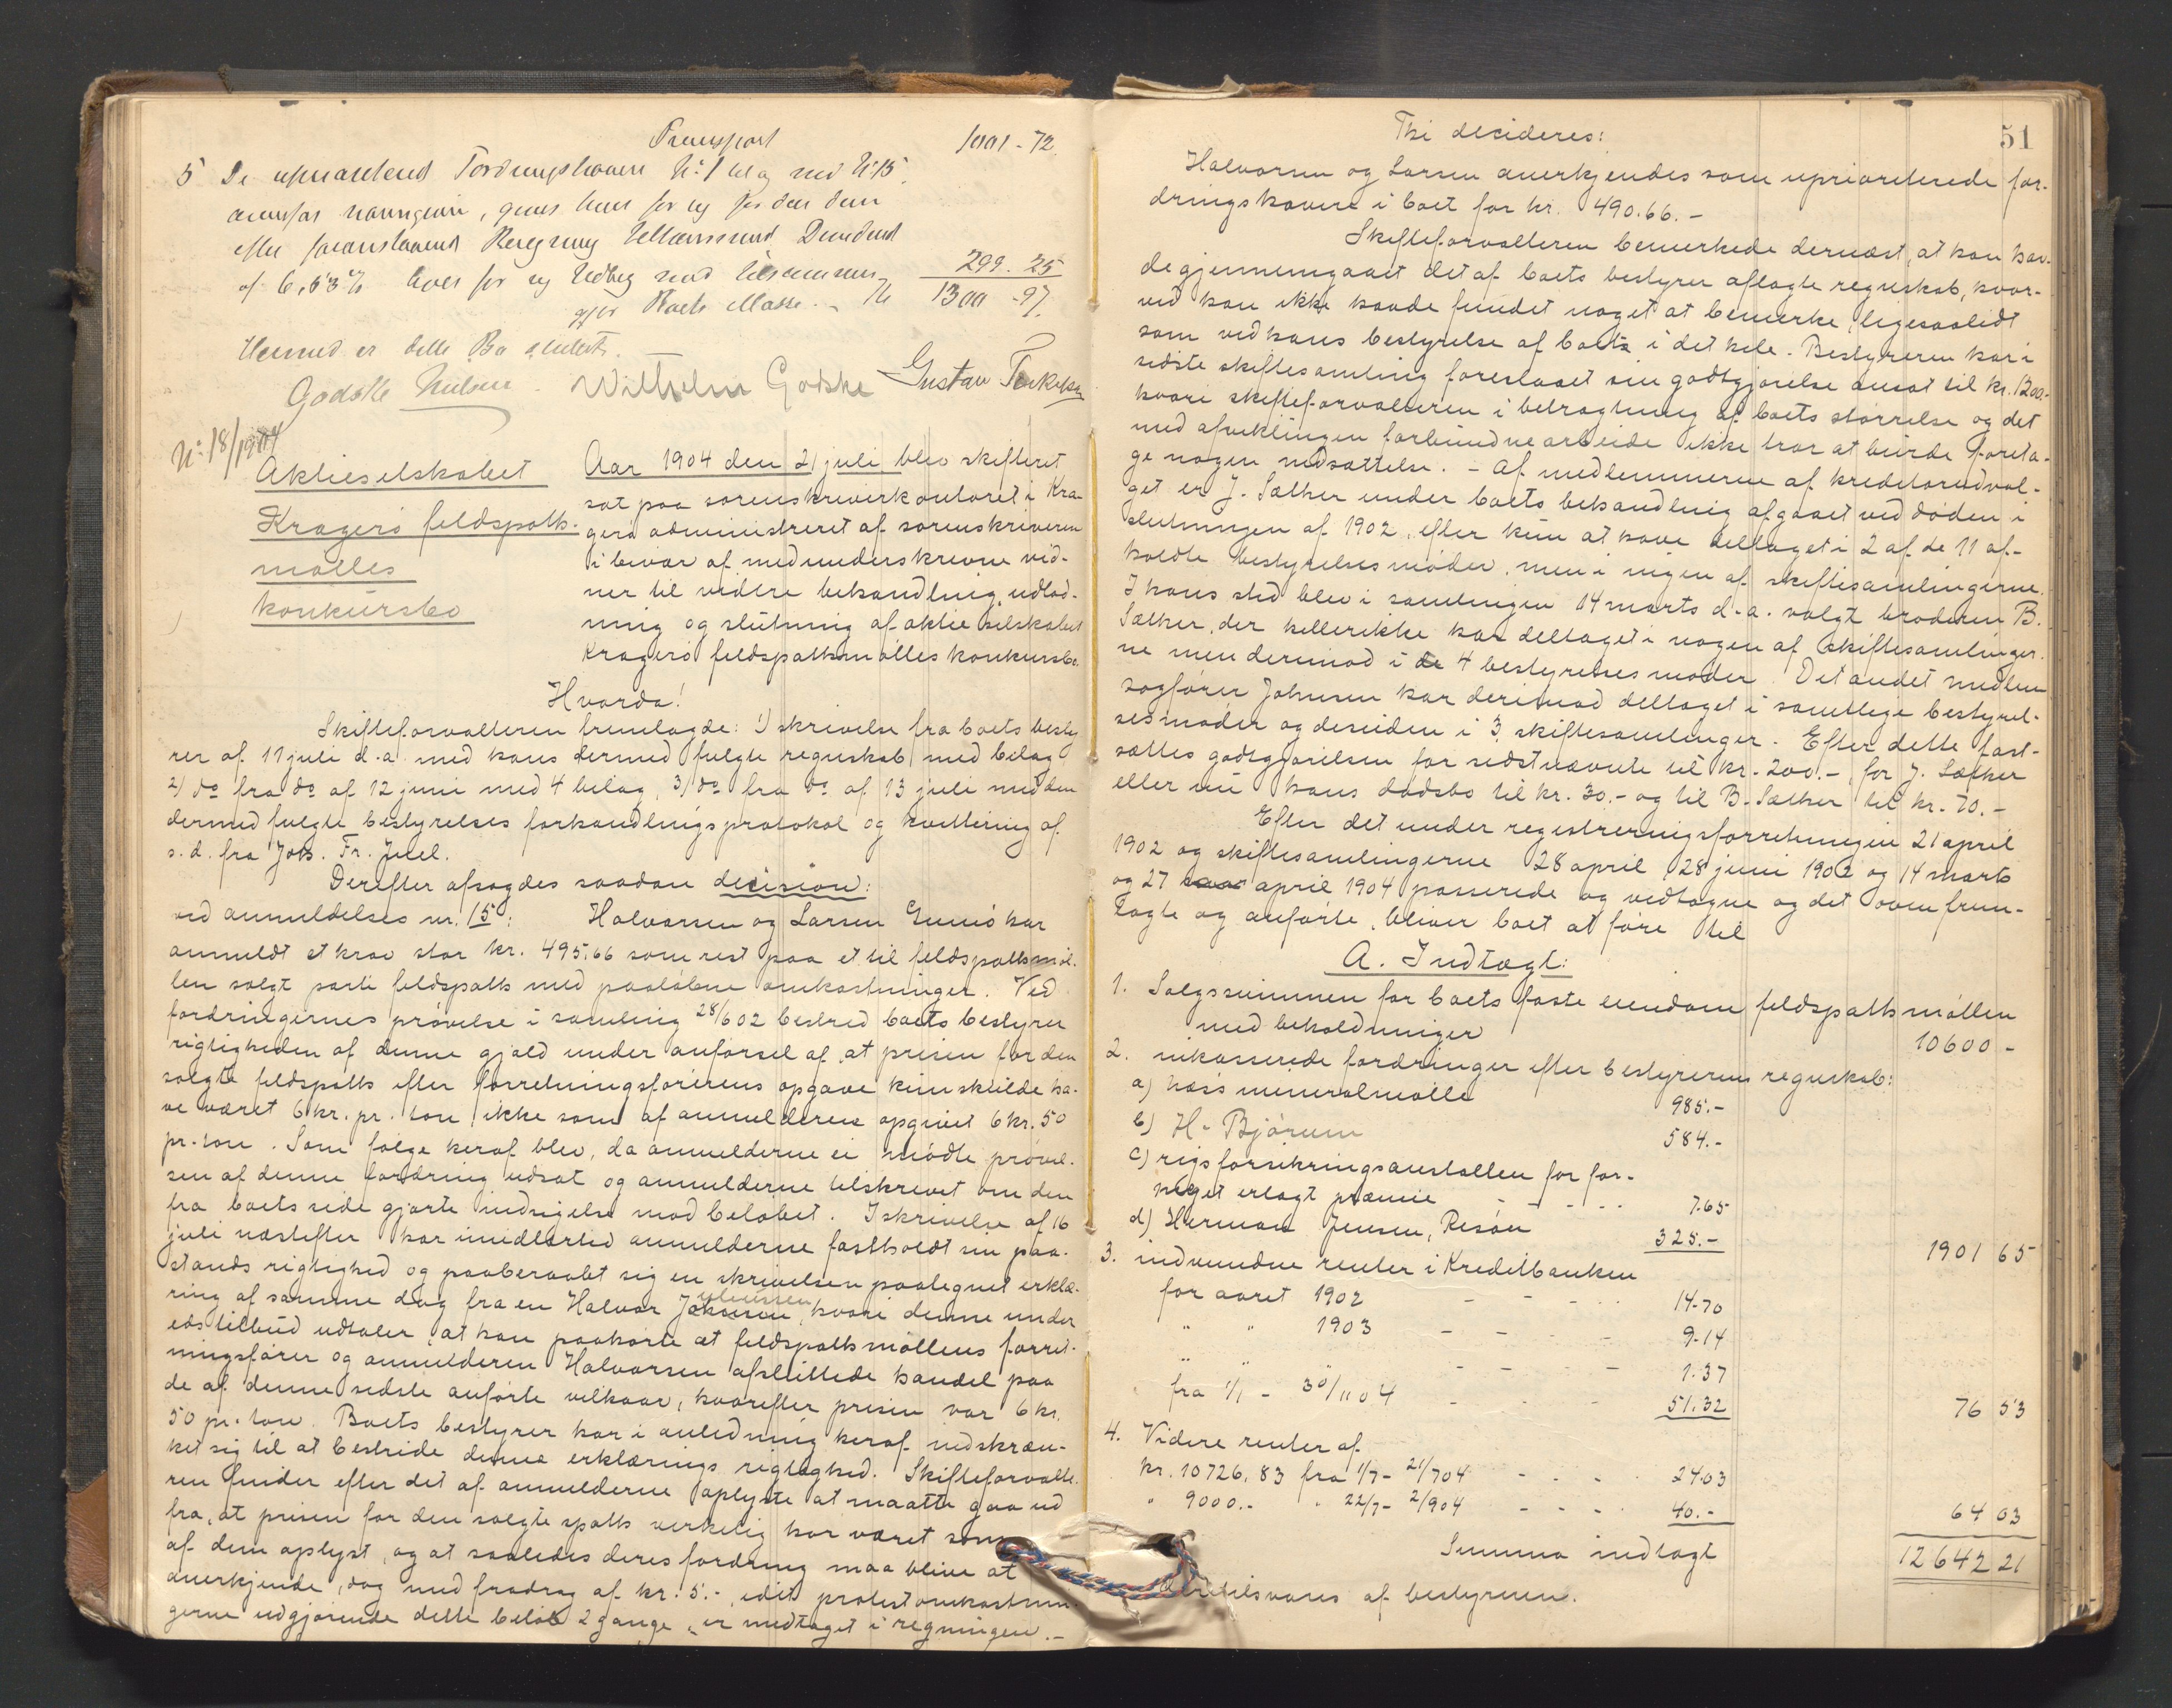 Transport 1001-72.
5 De uprioriterede Fordringshavere No 1 til og med No 15,
ovenfor navngivne, gives hver for sig for den dem
efter foranstaaende Beregning tilkommende Dividende
af 6,53 % hver for sig Udlæg med tilsammen 299.25
gjør Boets Masse - Kr 1300-97.
Hermed er dette Bo sluttet.
Godske Nielsen. Wilhelm Godske Gustav Terkelsen
No 18/1904
Aktieselskabet
Kragerø feldspath-
mølles
konkursbo
Aar 1904 den 21 juli blev skifteret
sat paa sorenskriverkontoret i Kra-
gerø administreret af sorenskriveren
i bivær af medunderskrevne vid-
ner til videre behandling, udlod-
ning og slutning af aktieselskabet
Kragerø feldspathmølles konkursbo.
Hvorda!
Skifteforvalteren fremlagde: 1) skrivelse fra boets besty-
rer af 11 juli d.a. med hans dermed fulgte regnskab med bilag
2) do fra do af 12 juni med 4 bilag, 3) do fra do af 13 juli med den
dermed fulgte bestyrelses forhandlingsprotokol og kvittering af
s.d. fra Johs. Fr. Juel.
Derefter afsagdes saadan decision:
ved anmeldelses nr. 15: Halvorsen og Larsen Ennis har
anmeldt et krav stor kr. 495,66 som rest paa et til feldspathsmøl-
len solgt parti feldspath med paaløbne omkostninger. Ved
fordringernes prøvelse i samling 28/6 02 bestred boets bestyrer
rigtigheden af denne gjæld under anførsel af at prisen for den
solgte feldspath efter forretningsførerens opgave kun skulde ha-
ve været 6 kr. pr. ton ikke som af anmelderne opgivet 6 kr. 50
pr. ton. Som følge heraf blev, da anmelderne ei mødte prøvel-
sen af denne fordring udsat og anmelderne tilskrevet om den
fra boets side gjorte indsigelse mod beløbet. I skrivelse af 16
juli næstefter har imidlertid anmelderne fastholdt sin paa-
stands rigtighed og paaberaabt sig en skrivelsen paategnet erklæ-
ring af samme dag fra en Halvor Johnsen, hvori denne under
eds tilbud udtaler, at han paahørte at feldspathsmøllens forret-
ningsfører og anmelderen Halvorsen afsluttede handel paa
de af denne sidste anførte vilkaar, hvorefter prisen var 6 kr.
50 pr. ton. Boets bestyrer har i anledning heraf indskræn-
ket sig til at bestride denne erklærings rigtighed. Skifteforvalte-
ren finder efter det af anmelderne oplyste at maatte gaa ud
fra, at prisen for den solgte spath virkelig har været som
af dem oplyst, og at saaledes deres fordring maa blive at
anerkjende, dog med fradrag af kr. 5.-, idet protestomkostnin-
gerne udgjørende dette beløb 2 gange er medtaget i regningen.-
51
Thi decideres:
Halvorsen og Larsen anerkjendes som uprioriterede for-
dringshavere i boet for kr. 490.66.-
Skifteforvalteren bemerkede dernæst, at han hav-
de gjennemgaaet det af boets bestyrer aflagte regnskab, hvor-
ved han ikke havde fundet noget at bemerke, ligesaalidt
som ved hans bestyrelse af boet i det hele. Bestyreren har i
sidste skiftesamling foreslaaet sin godtgjørelse ansat til kr. 1200.-
hvori skifteforvalteren i betragtning af boets størrelse og det
med afviklingen forbundne arbeide ikke tror at burde foreta-
ge nogen nedsættelse. - Af medlemmerne af kreditorudval-
get er J. Sæther under boets behandling afgaaet ved døden i
slutningen af 1902, efter kun at have deltaget i 2 af de 11 af-
holdte bestyrelsesmøder, men i ingen af skiftesamlingerne.
I hans sted blev i samlingen 14 marts d.a. valgt broderen B.
Sæther, der heller ikke har deltaget i nogen af skiftesamlinger-
ne men derimod i de 4 bestyrelsesmøder. Det andet medlem
sagfører Johnsen har derimod deltaget i samtlige bestyrel-
sesmøder og desuden i 3 skiftesamlinger. Efter dette fast-
sættes godtgjørelsen for sidstnævnte til kr. 200.-, for J. Sæther
eller nu hans dødsbo til kr. 30.- og til B. Sæther til kr. 70.-
Efter det under registreringsforretningen 21 april
1902 og skiftesamlingerne 28 april, 28 juni 1902 og 14 marts
og 27 april 1904 passerede og vedtagne og det oven frem-
lagte og anførte, bliver boet at føre til
A. Indtægt:
1. Salgssummen for boets faste eiendom feldspathsmøllen
med beholdninger 10600 -
2. inkasserede fordringer efter bestyrerens regnskab:
a) Næs mineralmølle 985.-
b) H. Bjørum 584.-
c) rigsforsikringsanstalten for for-
meget erlagt præmie - - - - 7.65
d) Herman Jensen, Risør 325.- 1901 65
3. indvundne renter i Kreditbanken
for aaret 1902 - - - - 14.70
" " 1903 - - - - 9.14
" " " - - - - 1.37
fra 1/1 - 30/11 04 - - - 51.32 76 53
4. Videre renter af
kr. 10726,83 fra 1/7 - 21/7 04 - - - 24.03
" 9000.- " 22/7 - 2/9 04 - - - 40.- 64 03
Summa indtægt 12642 21
der tilsvares af bestyreren.